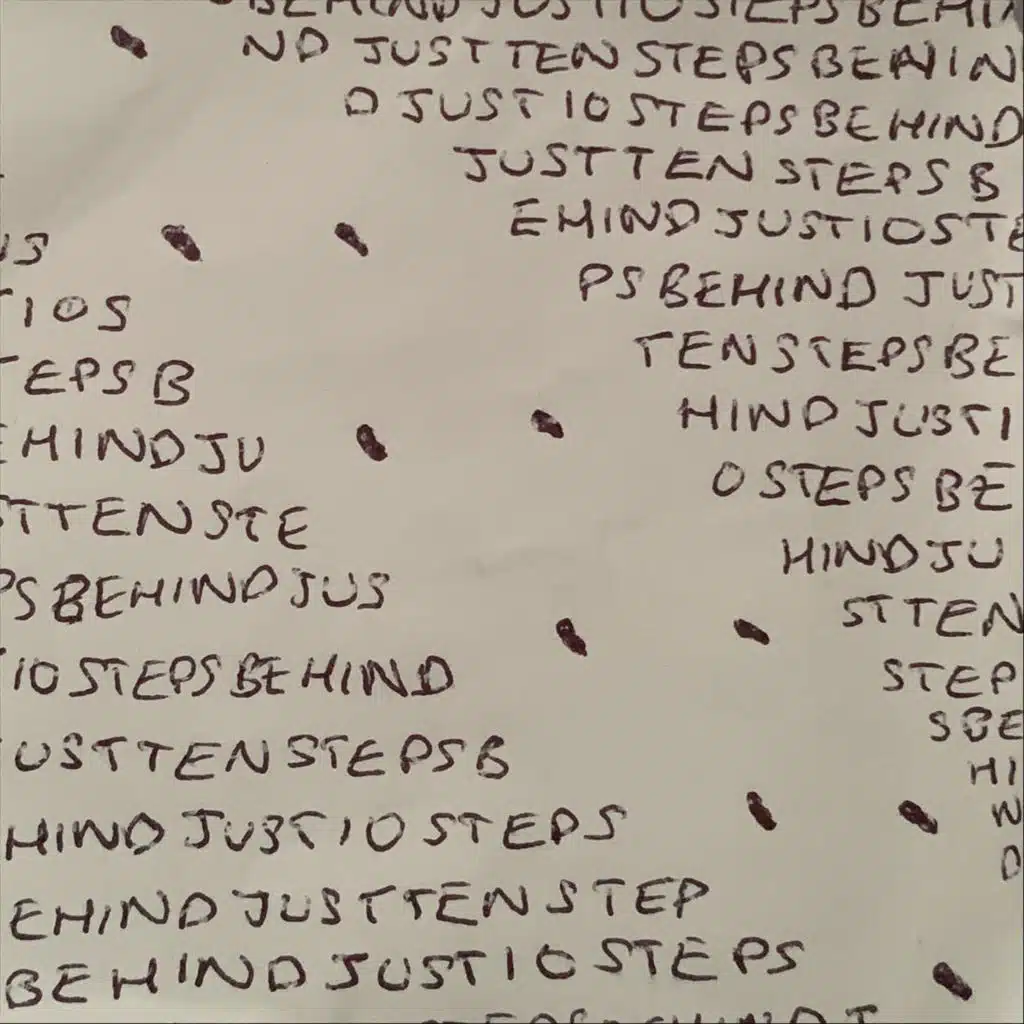 BEHIND JUST 10 STEPS BEHI
ND JUST TEN STEPS BEHIN
D JUST 10 STEPS BEHIND
JUST TEN STEPS B
EHIND JUST 10 STE
PS BEHIND JUST
TEN STEPS BE
HIND JUST 1
0 STEPS BE
HIND JU
ST TEN
STEP
S BE
HI
N
D
US
T 10 S
TEPS B
EHIND JU
ST TEN STE
PS BEHIND JUS
T 10 STEPS BEHIND
JUST TEN STEPS B
HIND JUST 10 STEPS
EHIND JUST TEN STEP
BEHIND JUST 10 STEPS
STEPS BEHIND J